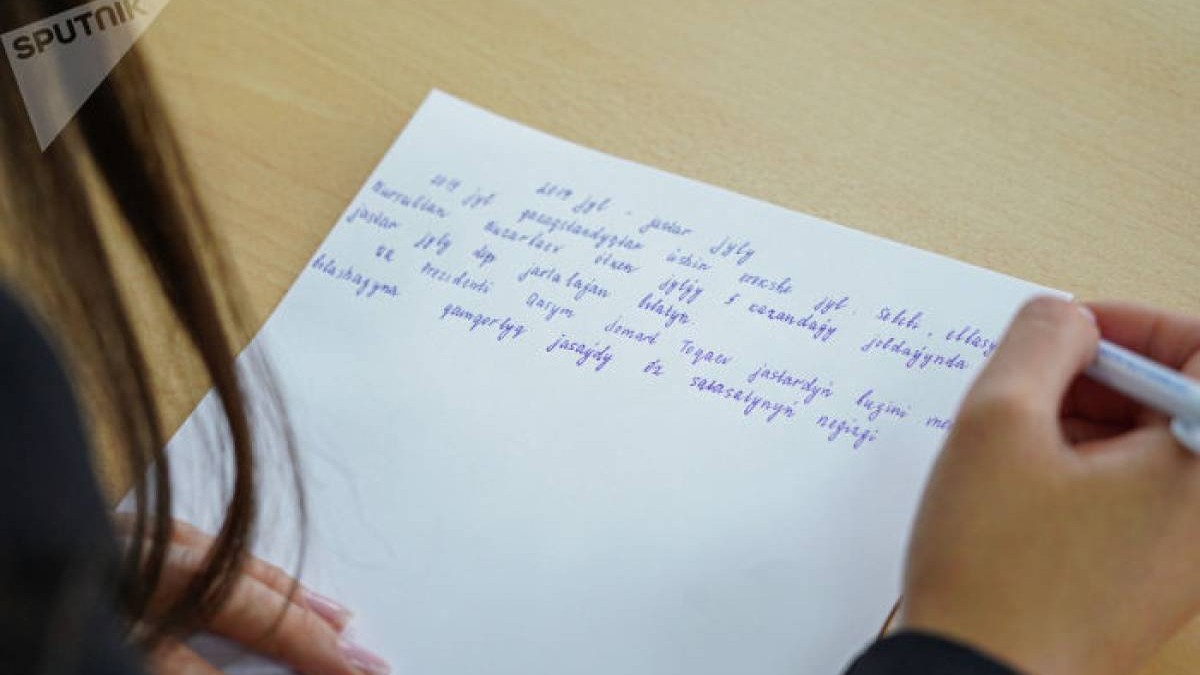 SPUTNIK
2019 jyl - jastar jyly
2019 jyl qazaqstandyqtar úshin erekshe jyl. Sebebi, elbasy
Nursultan Nazarbaev ótken jylǵy 5 qazandaǵy joldaýynda
jastar jyly dep jarialaǵan bolatyn.
QR Prezidenti Qasym Jomart Toqaev jastardyń búgini me
bolashaǵyna qamqorlyq jasaýdy óz saiasatynyń negizgi